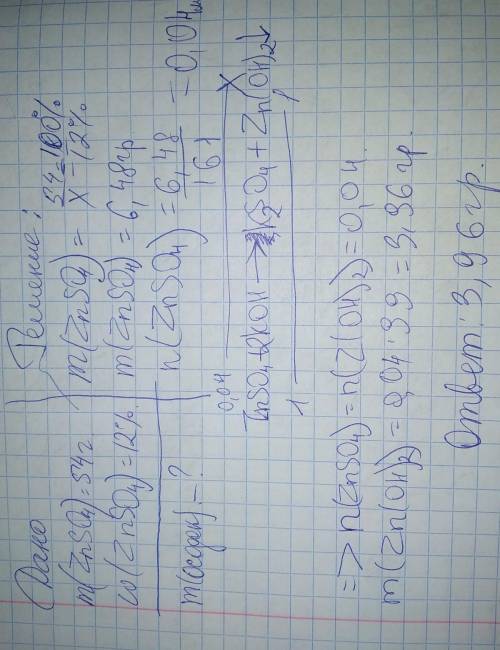 Дано
m(ZnSO₄)=54г
ω(ZnSO₄)=12%
m(осадка)-?
Решение:
m(ZnSO₄) = 54=100% / x – 12%
m(ZnSO₄) = 6,48гр
n(ZnSO₄) = 6,48 / 161 = 0,04
0,04 x
ZnSO₄+2KOH → K₂SO₄ + Zn(OH)₂↓
1 1
=> n(ZnSO₄)=n(Z(OH)₂)=0,04.
m(Zn(OH)₂)=0,04·99 = 3,96 гр.
Ответ: 3,96 гр.